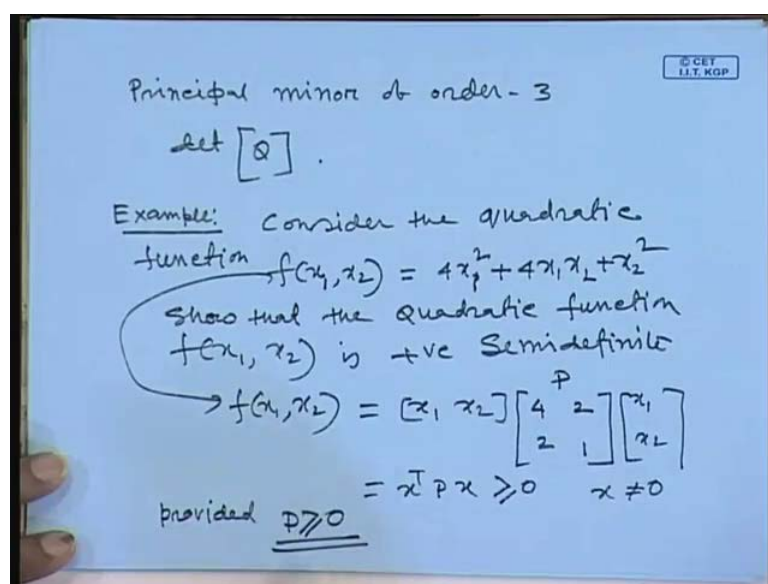 © CET
I.I.T. KGP
Principal minor of order - 3
det [Q] .
Example: Consider the quadratic
function f(x₁, x₂) = 4x₁² + 4x₁x₂ + x₂²
Show that the Quadratic function
f(x₁, x₂) is +ve Semidefinite
f(x₁, x₂) = [x₁ x₂] [4 2; 2 1] [x₁; x₂]
P
= xᵀ P x ⩾ 0 x ≠ 0
provided P ⩾ 0